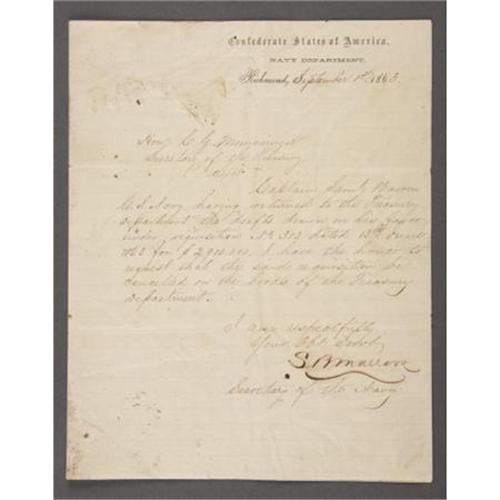 Confederate States of America,
NAVY DEPARTMENT,
Richmond, September 1st 1863.
Hon. C. G. Memminger
Secretary of the Treasury
Sir
Captain Saml. Barron
C.S. Navy having returned to the Treasury
Department the drafts drawn in his favor
under requisition No. 313 dated 13th
1863 for I have the honor to
request that the said requisition be
cancelled on the books of the Treasury
Department.
I am respectfully
Your Obt Servt
S R Mallory
Secretary of the Navy